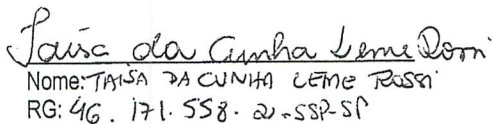 Taisa da Cunha Leme Rossi
Nome: TAISA DA CUNHA LEME ROSSI
RG: 46.171.558-2-SSP-SP